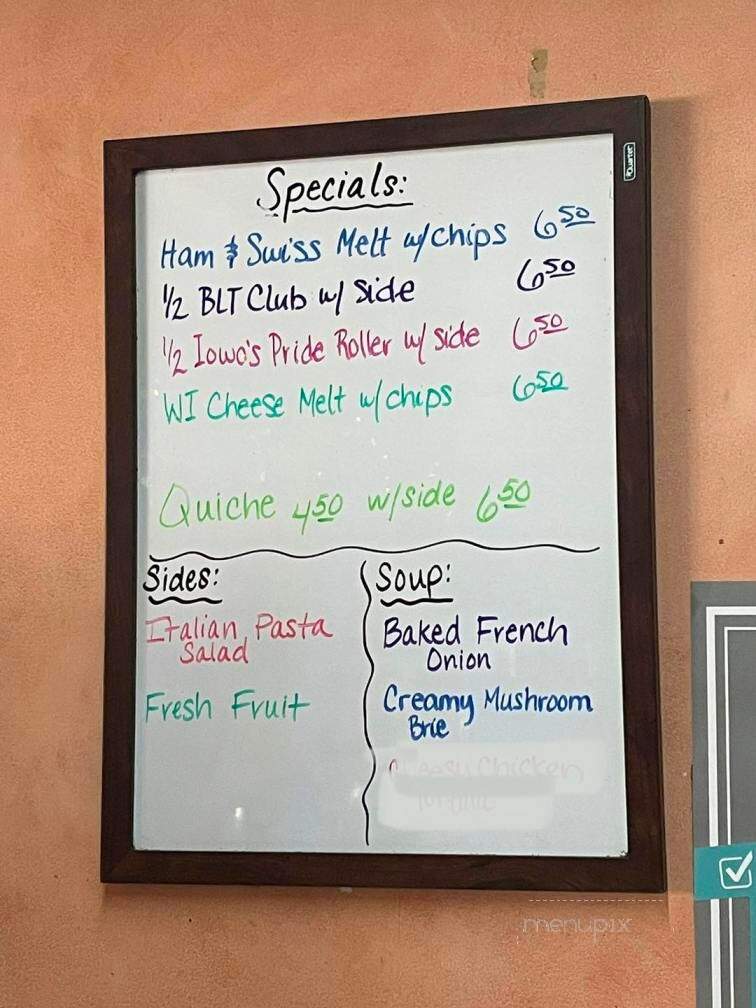 Specials:
Ham & Swiss Melt w/chips 6 50
1/2 BLT Club w/ side 6 50
1/2 Iowa's Pride Roller w/ side 6 50
WI Cheese Melt w/chips 6 50
Quiche 4 50 w/side 6 50
Sides:
Italian Pasta
Salad
Fresh Fruit
Soup:
Baked French
Onion
Creamy Mushroom
Brie
Chicken
Quartet
menupix